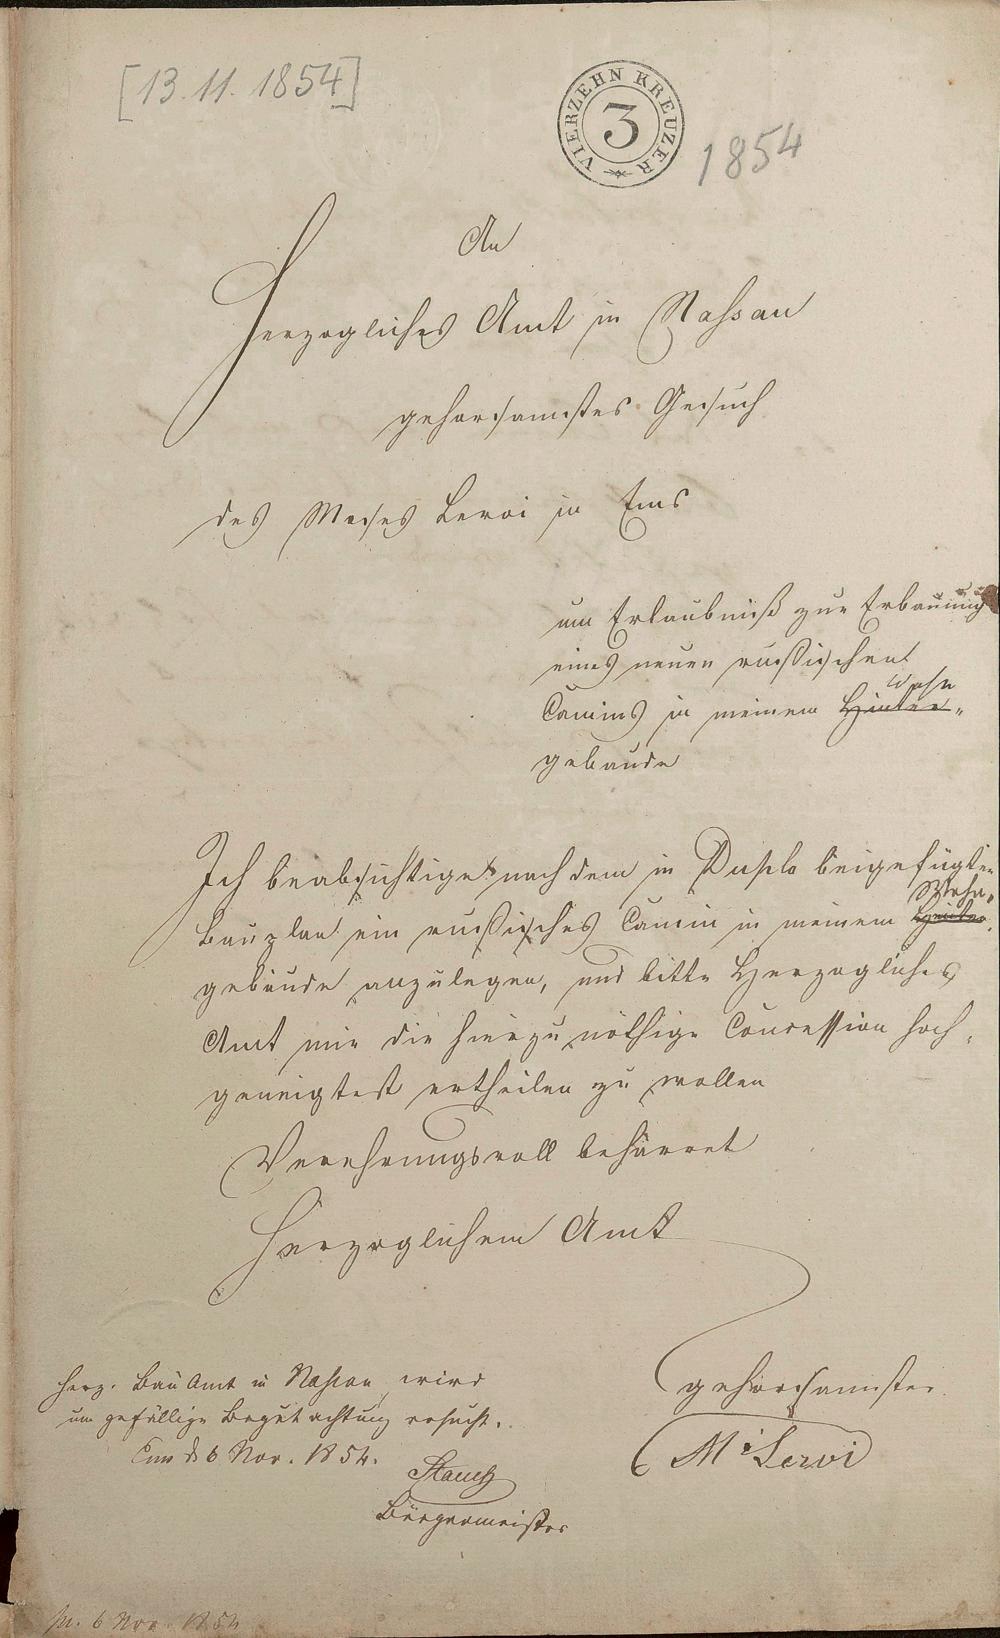 [13.11.1854]
VIERZEHN KREUZER
3
1854
An
Herzogliches Amt in Nassau
gehorsamstes Gesuch
des Moses Leroi in Ems
um Erlaubniß zur Erbauung
eines neuen russischen
Wohn
Camins in meinem Hinter-
gebaude
Ich beabsichtige nach dem in Duplo beigefügten
Wohn-
Bauplan ein russisches Camin in meinem Hinter-
gebäude anzulegen, und bitte Herzogliches
Amt mir die hierzu nöthige Concession hoch-
geneigtest ertheilen zu wollen
Verehrungsvoll beharret
Herzoglichem Amt
gehorsamster
M. Leroi
Herz. Bau Amt in Nassau wird
um gefällige Begutachtung ersucht.
Ems d 6 Nov. 1854.
Bürgermeister
pr. 6 Nov. 1854